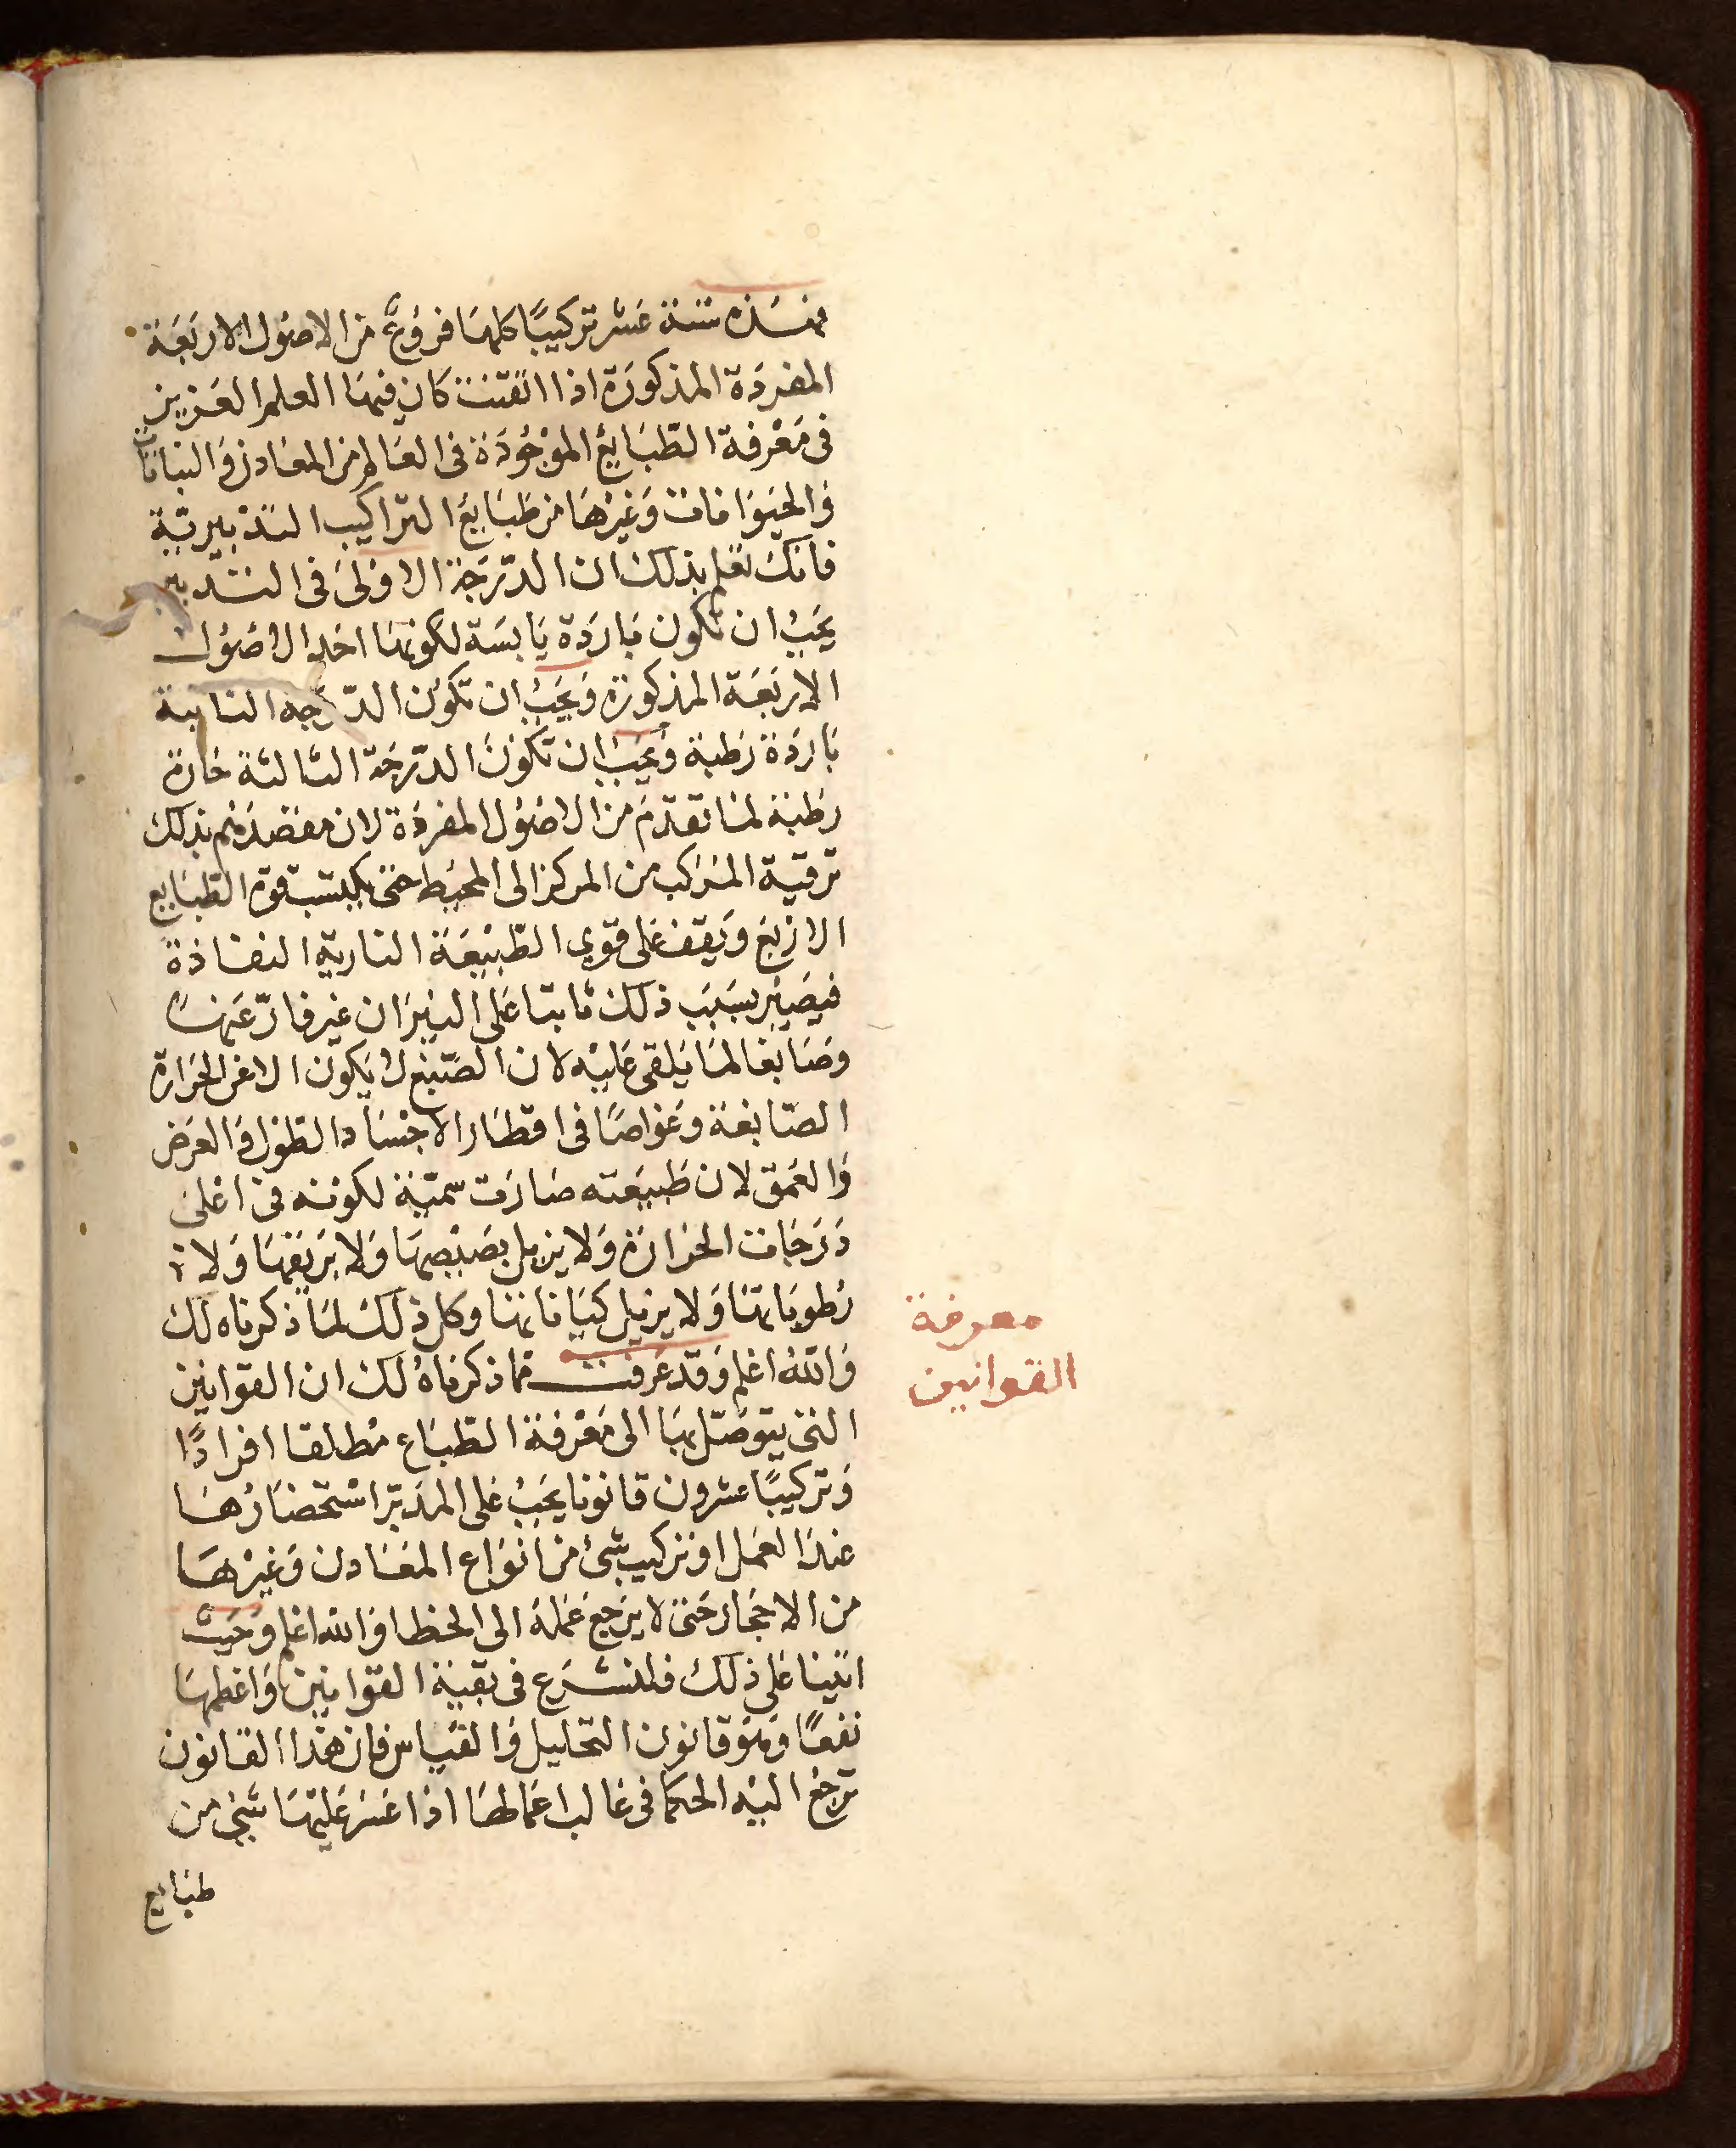 فهذه ستة عشر تركيبًا كلها فروع من الاصول الاربعة
المفردة المذكورة اذا اتقنت كان فيها العلم العزيز
فى معرفة الطبايع الموجودة فى العالم من المعادن والنباتات
والحيوانات وغيرها من طبايع التراكيب التدبيرية
فانك تعلم بذلك ان الدرجة الاولى فى التدبير
يجب ان تكون باردة يابسة لكونها احد الاصول
الاربعة المذكورة ويجب ان تكون الدرجه الثانية
باردة رطبة ويجب ان تكون الدرجة الثالثة حارة
رطبة لما تقدم من الاصول المفردة لان مقصدهم بذلك
ترقية المركب من المركز الى المحيط حتى يكتسب قوة الطبايع
الاربع ويقف على قوى الطبيعة النارية النفاذة
فيصير بسبب ذلك ثابتا على النيران غير فارّ عنها
وصابغا لما يلقى عليه لان الصبغ لا يكون الا عن الحرارة
الصابغة وغواصًا فى اقطار الاجساد الطول والعرض
والعمق لان طبيعته صارت سمية لكونه فى اعلى
درجات الحرارة ولا يزيل بصبصها ولا بريقها ولا
رطوباتها ولا يزيل كيانانها وكل ذلك لما ذكرناه لك
والله اعلم وقد عرفت مما ذكرناه لك ان القوانين
التى يتوصل بها الى معرفة الطباع مطلقا افرادًا
وتركيبًا عشرون قانونا يجب على المدبر استحضارها
عند العمل او تركيب شئ من انواع المعادن وغيرها
من الاحجار حتى لا يرجع عمله الى الخطا والله اعلم وحيث
اتينا على ذلك فلنشرع فى بقية القوانين واعظمها
نفعًا وهو قانون التحليل والقياس فان هذا القانون
ترجع اليه الحكما فى غالب اعمالها اذا عسر عليها شئ من
طبايع
معرفة
القوانين